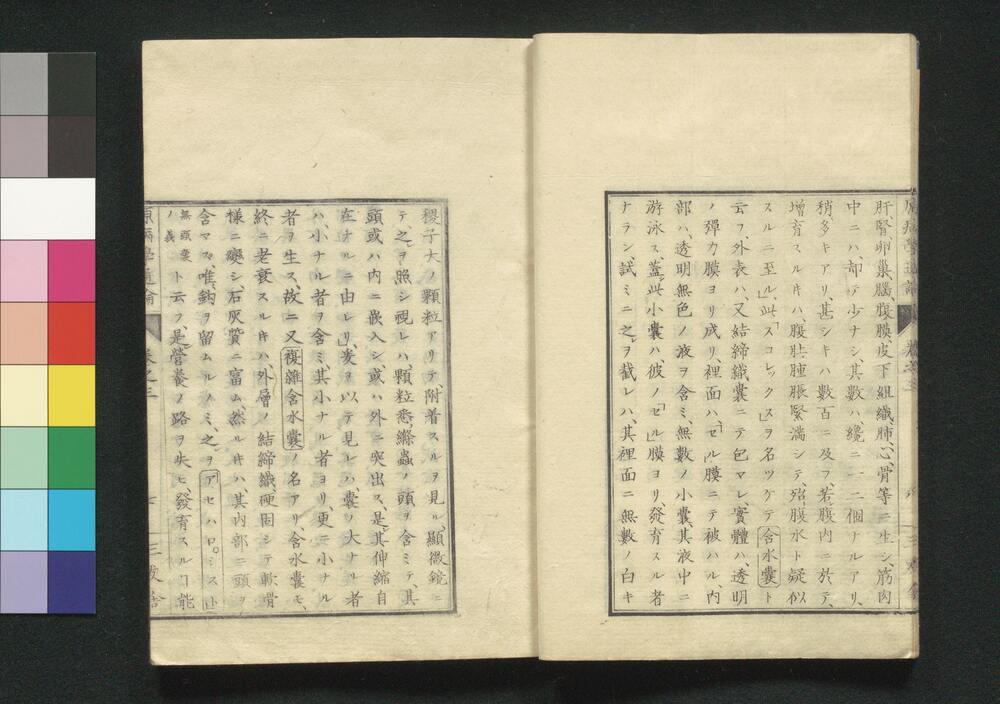 肝、腎、卵巢、腦、腹膜、皮下組織、肺、心、骨等ニ生シ、筋肉
中ニハ、却テ少ナシ、其數ハ、纔ニ一二個ナルアリ、
稍多キアリ、甚シキハ數百ニ及フ、若、腹内ニ於テ、
增育スルキハ、腹肚腫脹緊滿シテ、殆腹水ト疑似
スルニ至ル、此「スコレックス」ヲ名ツケテ含水囊ト
云フ、外表ハ、又結締織囊ニテ包マレ、實體ハ、透明
ノ彈力膜ヨリ成リ、裡面ハ、「ゼル」膜ニテ被ハル、内
部ハ、透明無色ノ液ヲ含ミ、無數ノ小囊、其液中ニ
游泳ス、蓋、此小囊ハ、彼ノ「ゼル」膜ヨリ、發育スル者
ナラン、試ミニ之ヲ截レハ、其裡面ニ無數ノ白キ
稷子大ノ顆粒アリテ、附着スルヲ見ル、顯微鏡ニ
テ、之ヲ照シ視レハ、顆粒悉、縧蟲ノ頭ヲ含ミテ、其
頭或ハ内ニ嵌入シ、或ハ外ニ突出ス、是、其伸縮自
在ナルニ由レリ、爰ヲ以テ見レハ、囊ノ大ナル者
ハ、小ナル者ヲ含ミ、其小ナル者ヨリ、更ニ小ナル
者ヲ生ス、故ニ又複雜含水囊ノ名アリ、含水囊モ、
終ニ老衰スルキハ、外層ノ結締織硬固シテ軟骨
樣ニ變シ、石灰質ニ富ム、然ルキハ、其内部ニ頭ヲ
含マス、唯、鈎ヲ留ムルノミ、之ヲアセハロ。シスト
無頭囊ノ義ト云フ、是、營養ノ路ヲ失ヒ、發育スルヿ能
原病學通論
卷之三
三友舍